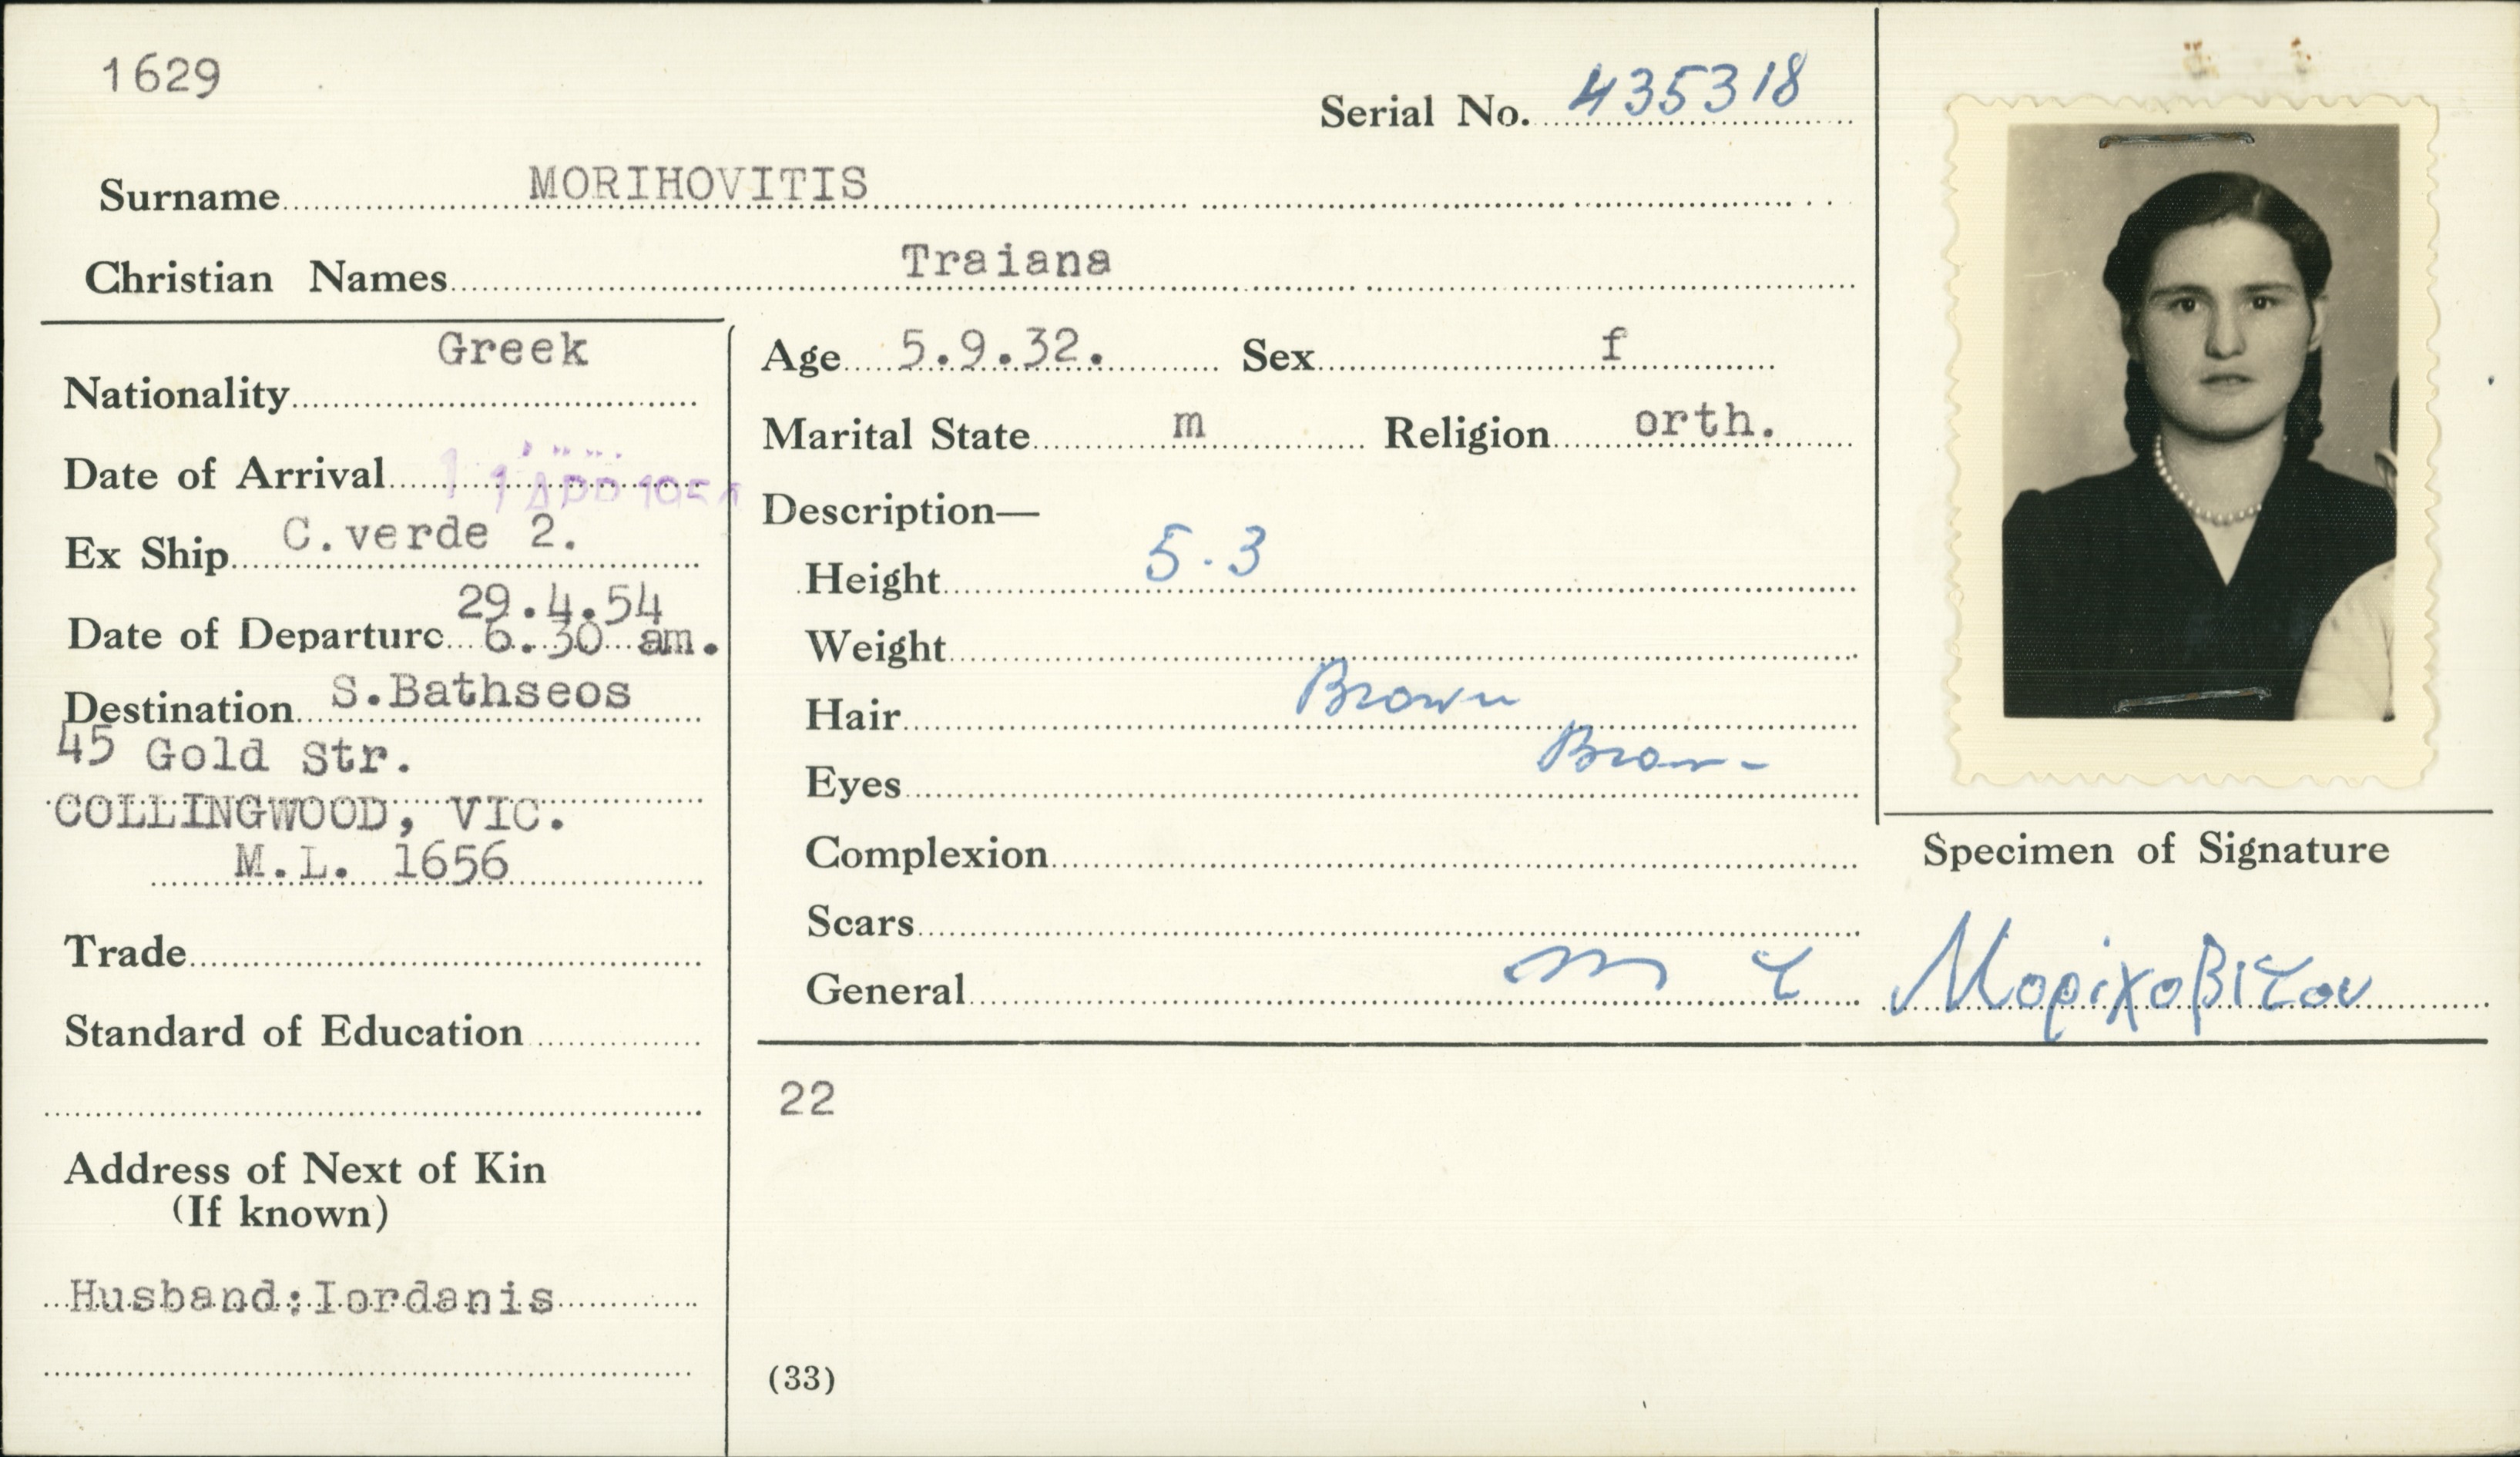 1629
Serial No. 435318
Surname MORIHOVITIS
Christian Names Traiana
Nationality Greek
Date of Arrival
Ex Ship C.verde 2.
Date of Departure 29.4.54
6.30 am.
Destination S.Bathseos
45 Gold Str.
COLLINGWOOD, VIC.
M.L. 1656
Trade
Standard of Education
Address of Next of Kin
(If known)
Husband:Iordanis
Age 5.9.32. Sex f
Marital State m Religion orth.
Description—
Height 5.3
Weight
Hair Brown
Eyes Brown
Complexion
Scars
General
Specimen of Signature
Μορίχοβιτου
22
(33)